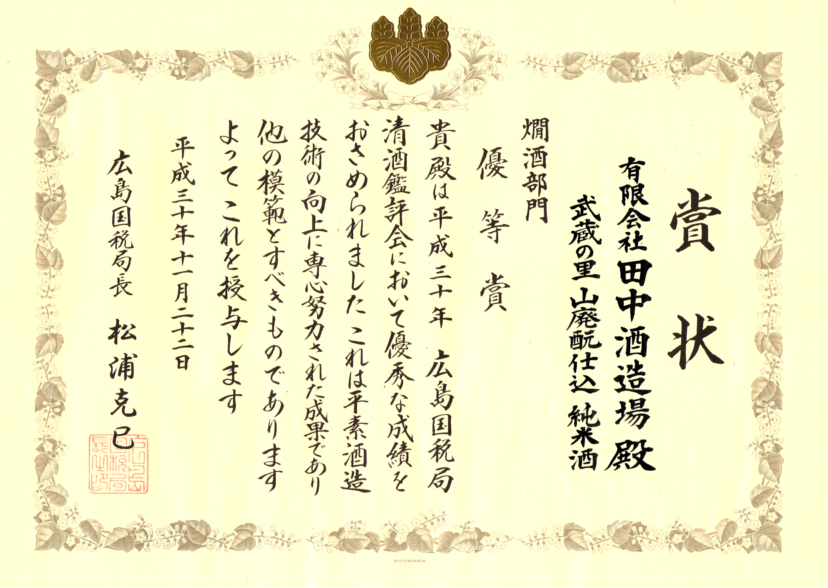 賞状
有限会社 田中酒造場 殿
武蔵の里 山廃酛仕込 純米酒
燗酒部門
優等賞
貴殿は平成三十年 広島国税局
清酒鑑評会において優秀な成績を
おさめられました これは平素酒造
技術の向上に専心努力された成果であり
他の模範とすべきものであります
よって これを授与します
平成三十年十一月二十二日
広島国税局長 松浦克巳